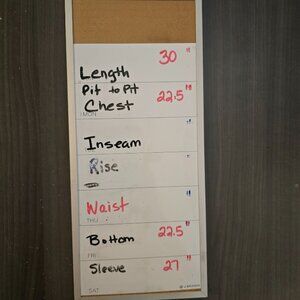 Length 30 "
Pit to Pit
Chest 22.5"
MON
Inseam "
Rise "
Waist "
THU
Bottom 22.5"
FRI
Sleeve 27 "
SAT